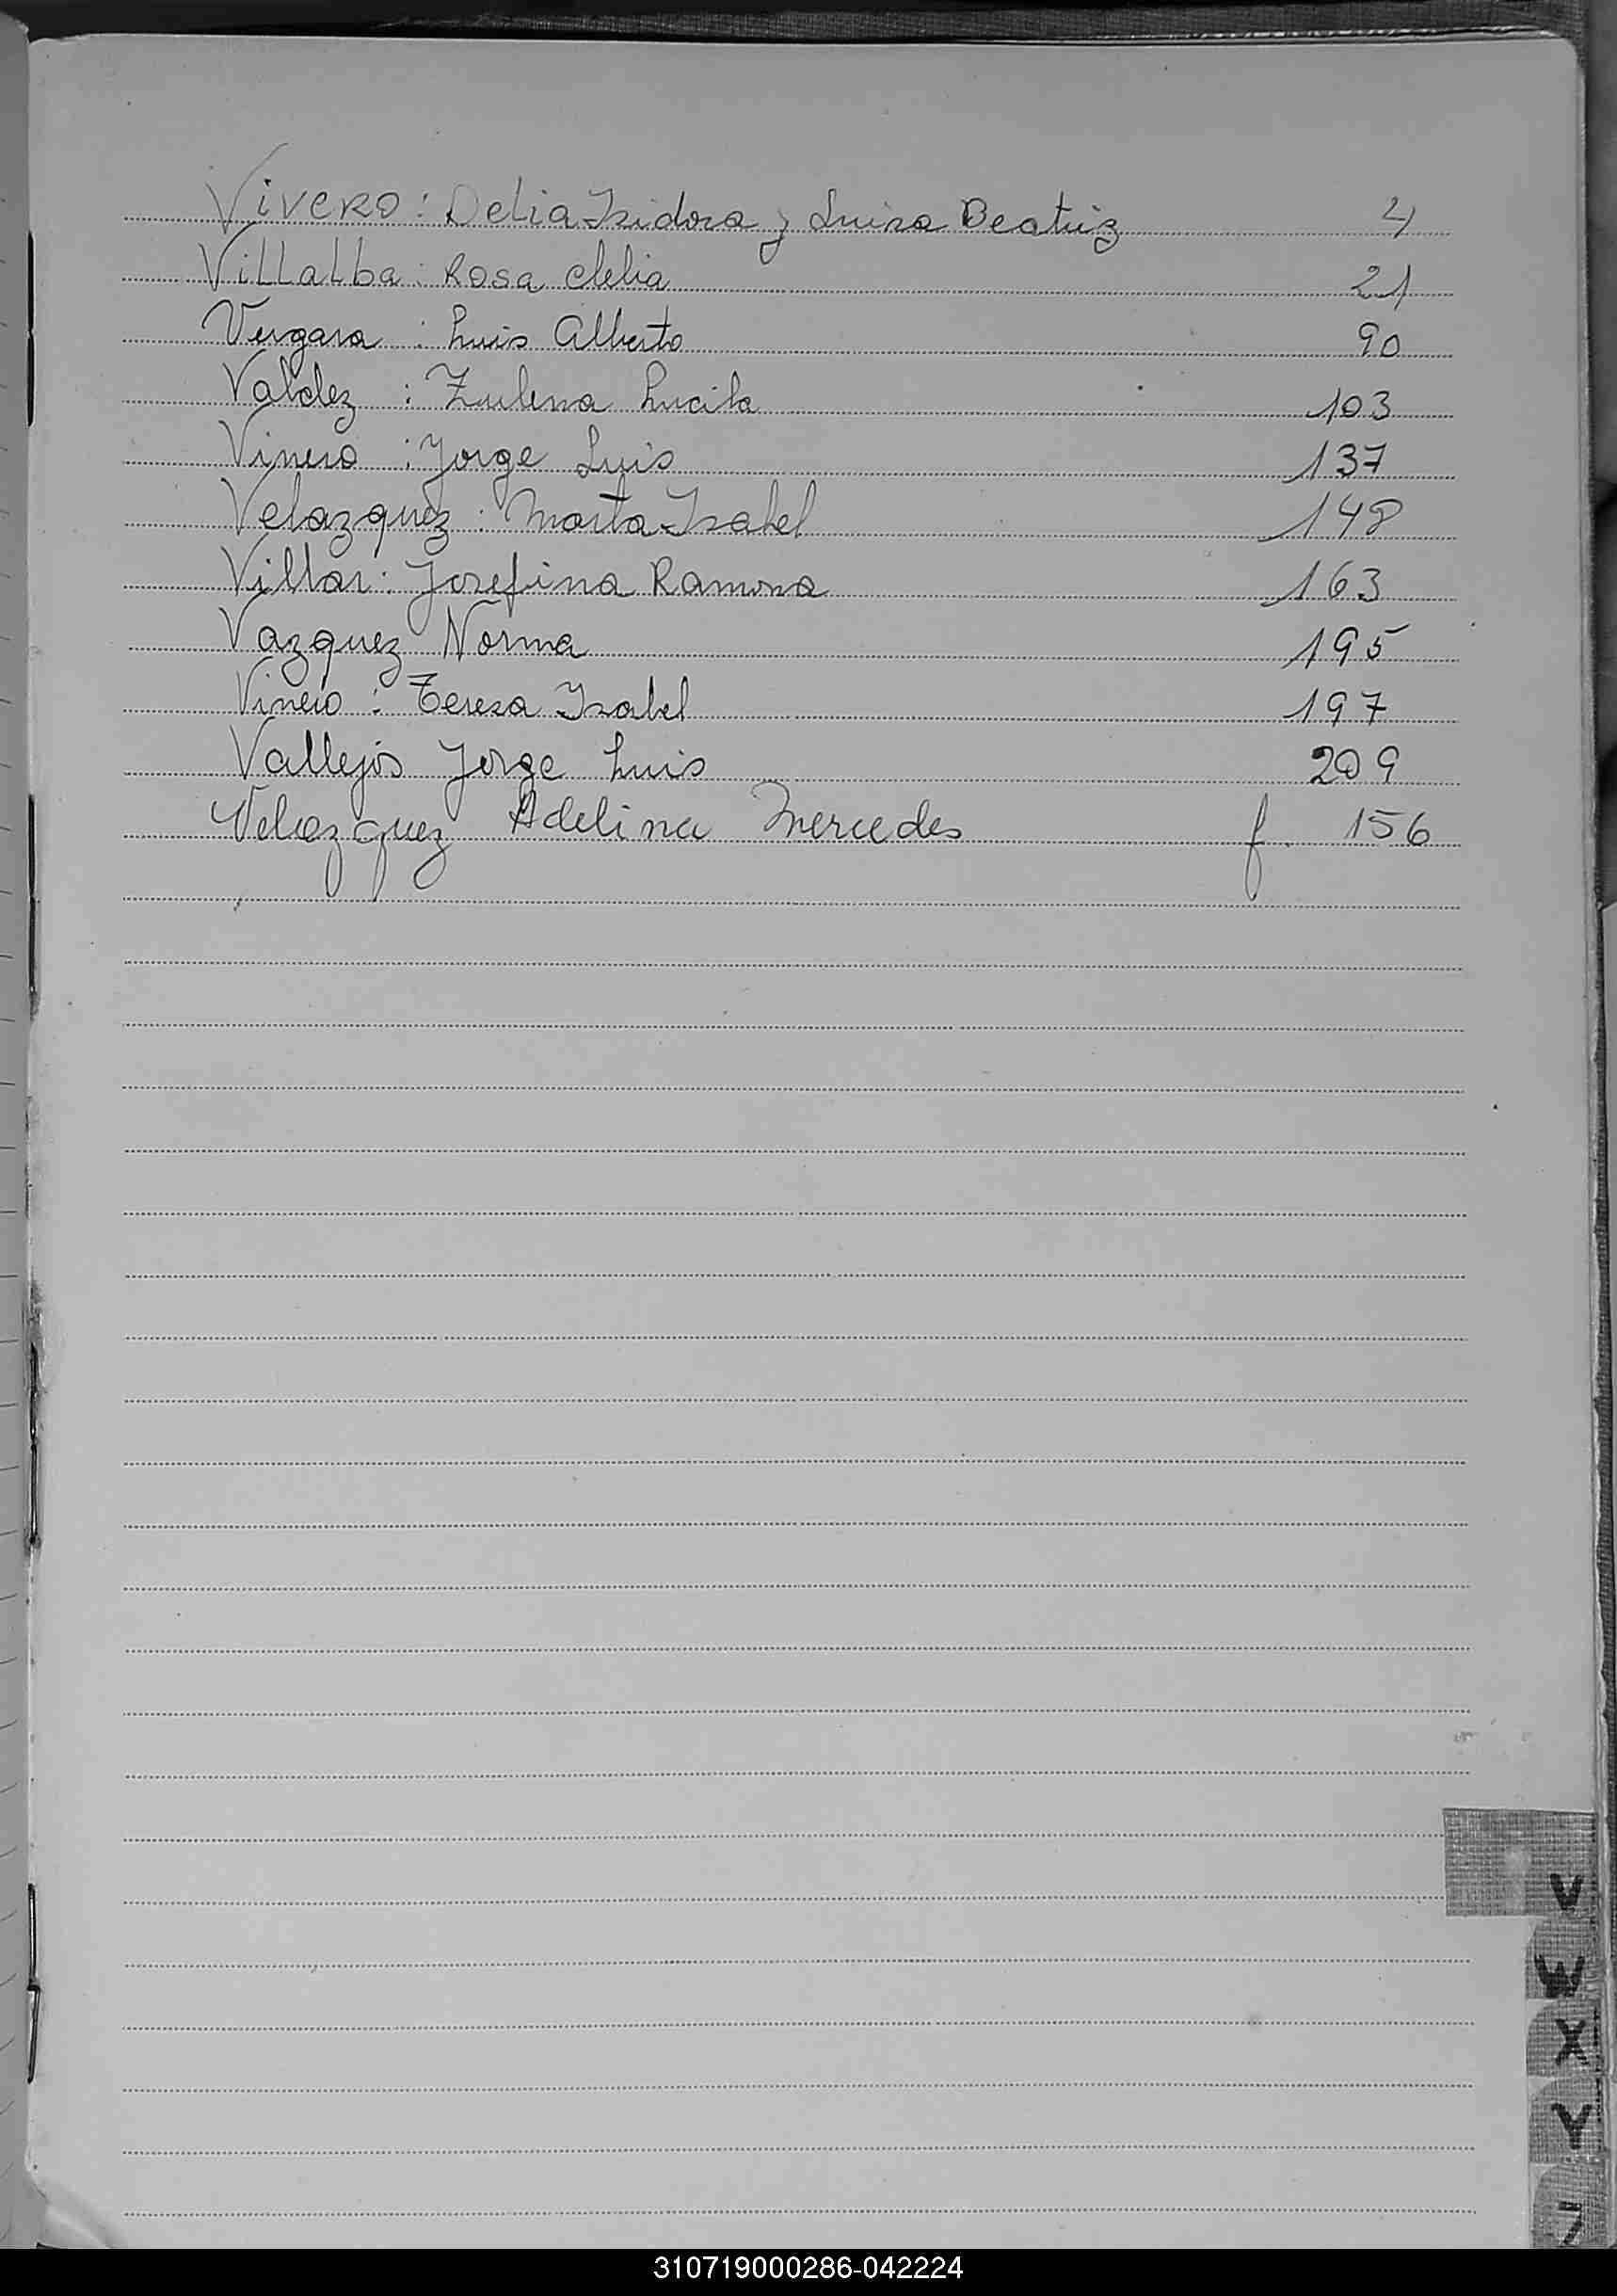 Vivero: Delia Isidora y Luisa Beatriz 4
Villalba: Rosa Clelia 21
Vergara: Luis Alberto 90
Valdez: Zulema Lucila 103
Vinero: Jorge Luis 137
Velazquez: Marta Isabel 148
Villar: Josefina Ramona 163
Vazquez Norma 195
Vinero: Teresa Isabel 197
Vallejos Jorge Luis 209
Velazquez Adelina Mercedes f. 156
V
W
X
Y
Z
310719000286-042224